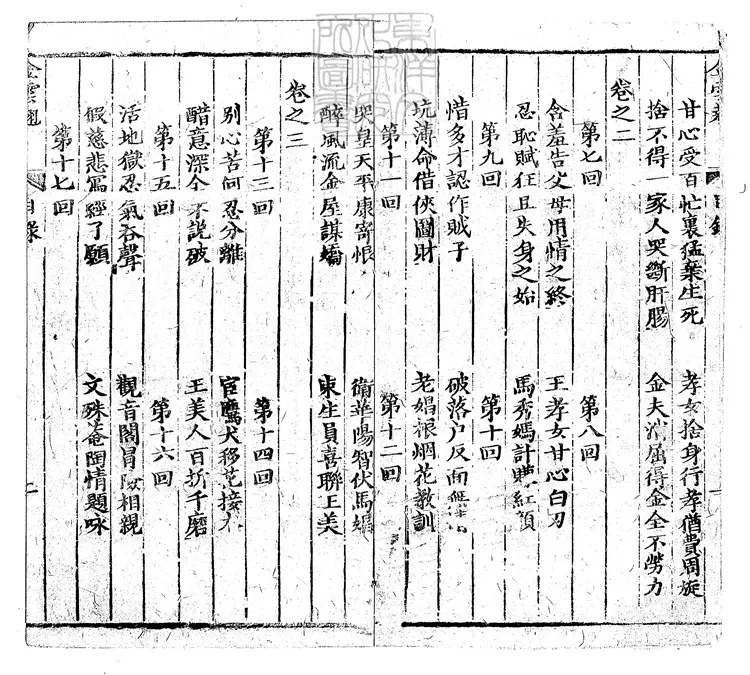 甘心受百忙裏猛棄生死　孝女捨身行孝猶費周旋
捨不得一家人哭斷肝腸　金夫消屈得金全不勞力
卷之二
第七回　第八回
含羞告父母用情之終　王孝女甘心白刃
忍恥賦狂且失身之始　馬秀媽計賺紅顏
第九回　第十回
惜多才認作賊子　破落户反面
坑薄命借俠圖財　老娼根烟花教訓
第十一回　第十二回
哭皇天平康寄恨　衛華陽智伏馬
醉風流金屋謀嬌　束生員喜聯王美
卷之三
第十三回　第十四回
别心苦何忍分離　宦鷹犬移花接木
醋意深全不說破　王美人百折千磨
第十五回　第十六回
活地獄忍氣吞聲　觀音閣冒險相親
假慈悲寫經了願　文殊菴陶情題咏
第十七回
金雲翹　目錄　二